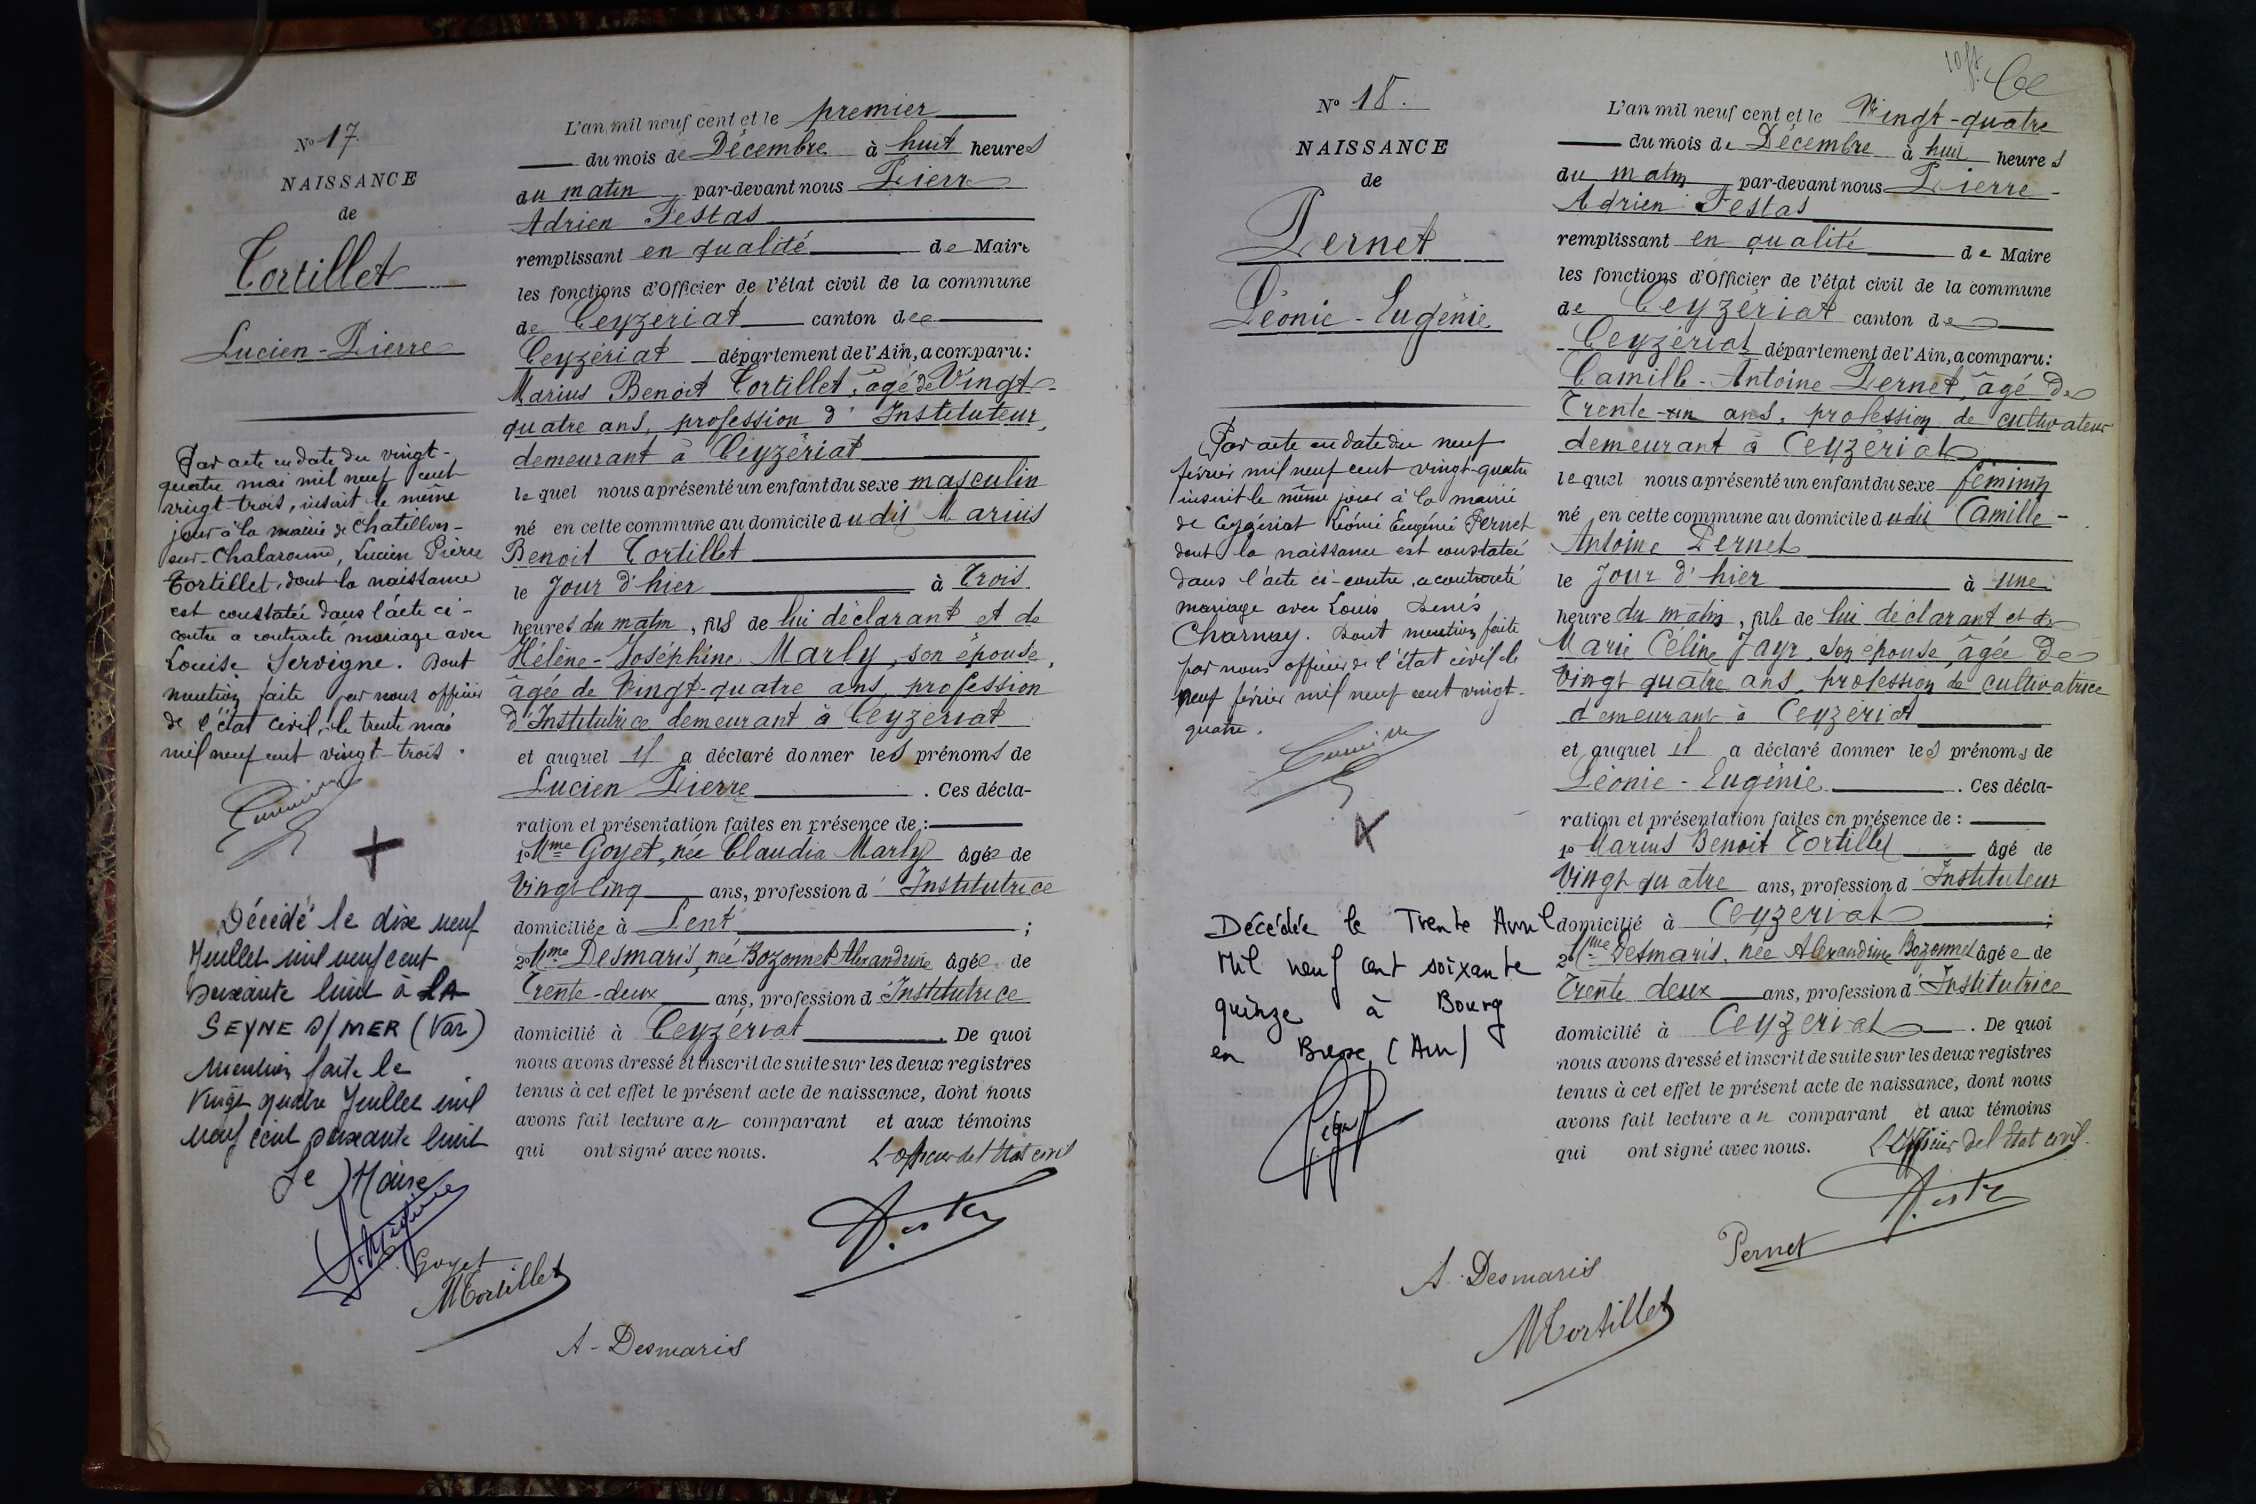 No 17.
NAISSANCE
de
Tortillet
Lucien-Pierre
Par acte en date du vingt-
quatre mai mil neuf cent
vingt-trois, inscrit le même
jour à la mairie de Chatillon-
sur-Chalaronne, Lucien Pierre
Tortillet, dont la naissance
est constatée dans l'acte ci-
contre a contracté mariage avec
Louise Servigne. Dont
mention faite par nous officier
de l'état civil, le trente mai
mil neuf cent vingt-trois.
Décédé le dix neuf
Juillet mil neuf cent
soixante huit à LA
SEYNE S/MER (Var)
Mention faite le
Vingt quatre Juillet mil
neuf cent soixante huit
Le Maire
L'an mil neuf cent et le premier
du mois de Décembre à huit heures
du matin par-devant nous Pierre
Adrien Festas
remplissant en qualité de Maire
les fonctions d'Officier de l'état civil de la commune
de Ceyzériat canton de
Ceyzériat département de l'Ain, a comparu:
Marius Benoit Tortillet, âgé de Vingt-
quatre ans, profession d'Instituteur,
demeurant à Ceyzériat
lequel nous a présenté un enfant du sexe masculin
né en cette commune au domicile dudit Marius
Benoit Tortillet
le Jour d'hier à Trois
heures du matin, fils de lui déclarant et de
Hélène-Joséphine Marly, son épouse,
âgée de Vingt-quatre ans, profession
d'Institutrice demeurant à Ceyzériat
et auquel il a déclaré donner les prénoms de
Lucien Pierre. Ces décla-
ration et présentation faites en présence de:
1o Mme Goyet, née Claudia Marly âgée de
Vingt-cinq ans, profession d'Institutrice
domiciliée à Lent;
2o Mme Desmaris, née Bozonnet Alexandrine âgée de
Trente-deux ans, profession d'Institutrice
domicilié à Ceyzériat. De quoi
nous avons dressé et inscrit de suite sur les deux registres
tenus à cet effet le présent acte de naissance, dont nous
avons fait lecture au comparant et aux témoins
qui ont signé avec nous. L'officier de l'Etat civil
Goyet
MTortillet
A-Desmaris
No 18.
NAISSANCE
de
Pernet
Léonie-Eugénie
Par acte en date du neuf
février mil neuf cent vingt-quatre
inscrit le même jour à la mairie
de Ceyzériat Léonie Eugénie Pernet
dont la naissance est constatée
dans l'acte ci-contre, a contracté
mariage avec Louis Denis
Charnay. Dont mention faite
par nous officier de l'état civil le
neuf février mil neuf cent vingt-
quatre.
Décédée le Trente Avril
Mil neuf cent soixante
quinze à Bourg
en Bresse (Ain)
L'an mil neuf cent et le Vingt-quatre
du mois de Décembre à huit heures
du matin par-devant nous Pierre-
Adrien Festas
remplissant en qualité de Maire
les fonctions d'Officier de l'état civil de la commune
de Ceyzériat canton de
Ceyzériat département de l'Ain, a comparu:
Camille-Antoine Pernet, âgé de
Trente-un ans, profession de cultivateur
demeurant à Ceyzériat
lequel nous a présenté un enfant du sexe féminin
né en cette commune au domicile dudit Camille-
Antoine Pernet
le Jour d'hier à une
heure du matin, fille de lui déclarant et de
Marie Céline Jayr, son épouse, âgée de
Vingt quatre ans, profession de cultivatrice
demeurant à Ceyzériat
et auquel il a déclaré donner les prénoms de
Léonie-Eugénie. Ces décla-
ration et présentation faites en présence de:
1o Marius Benoit Tortillet âgé de
Vingt quatre ans, profession d'Instituteur
domicilié à Ceyzeriat;
2o Mme Desmaris, née Alexandrine Bozonnet âgée de
Trente deux ans, profession d'Institutrice
domicilié à Ceyzeriat. De quoi
nous avons dressé et inscrit de suite sur les deux registres
tenus à cet effet le présent acte de naissance, dont nous
avons fait lecture au comparant et aux témoins
qui ont signé avec nous. L'Officier de l'Etat civil.
Pernet
A. Desmaris
MTortillet